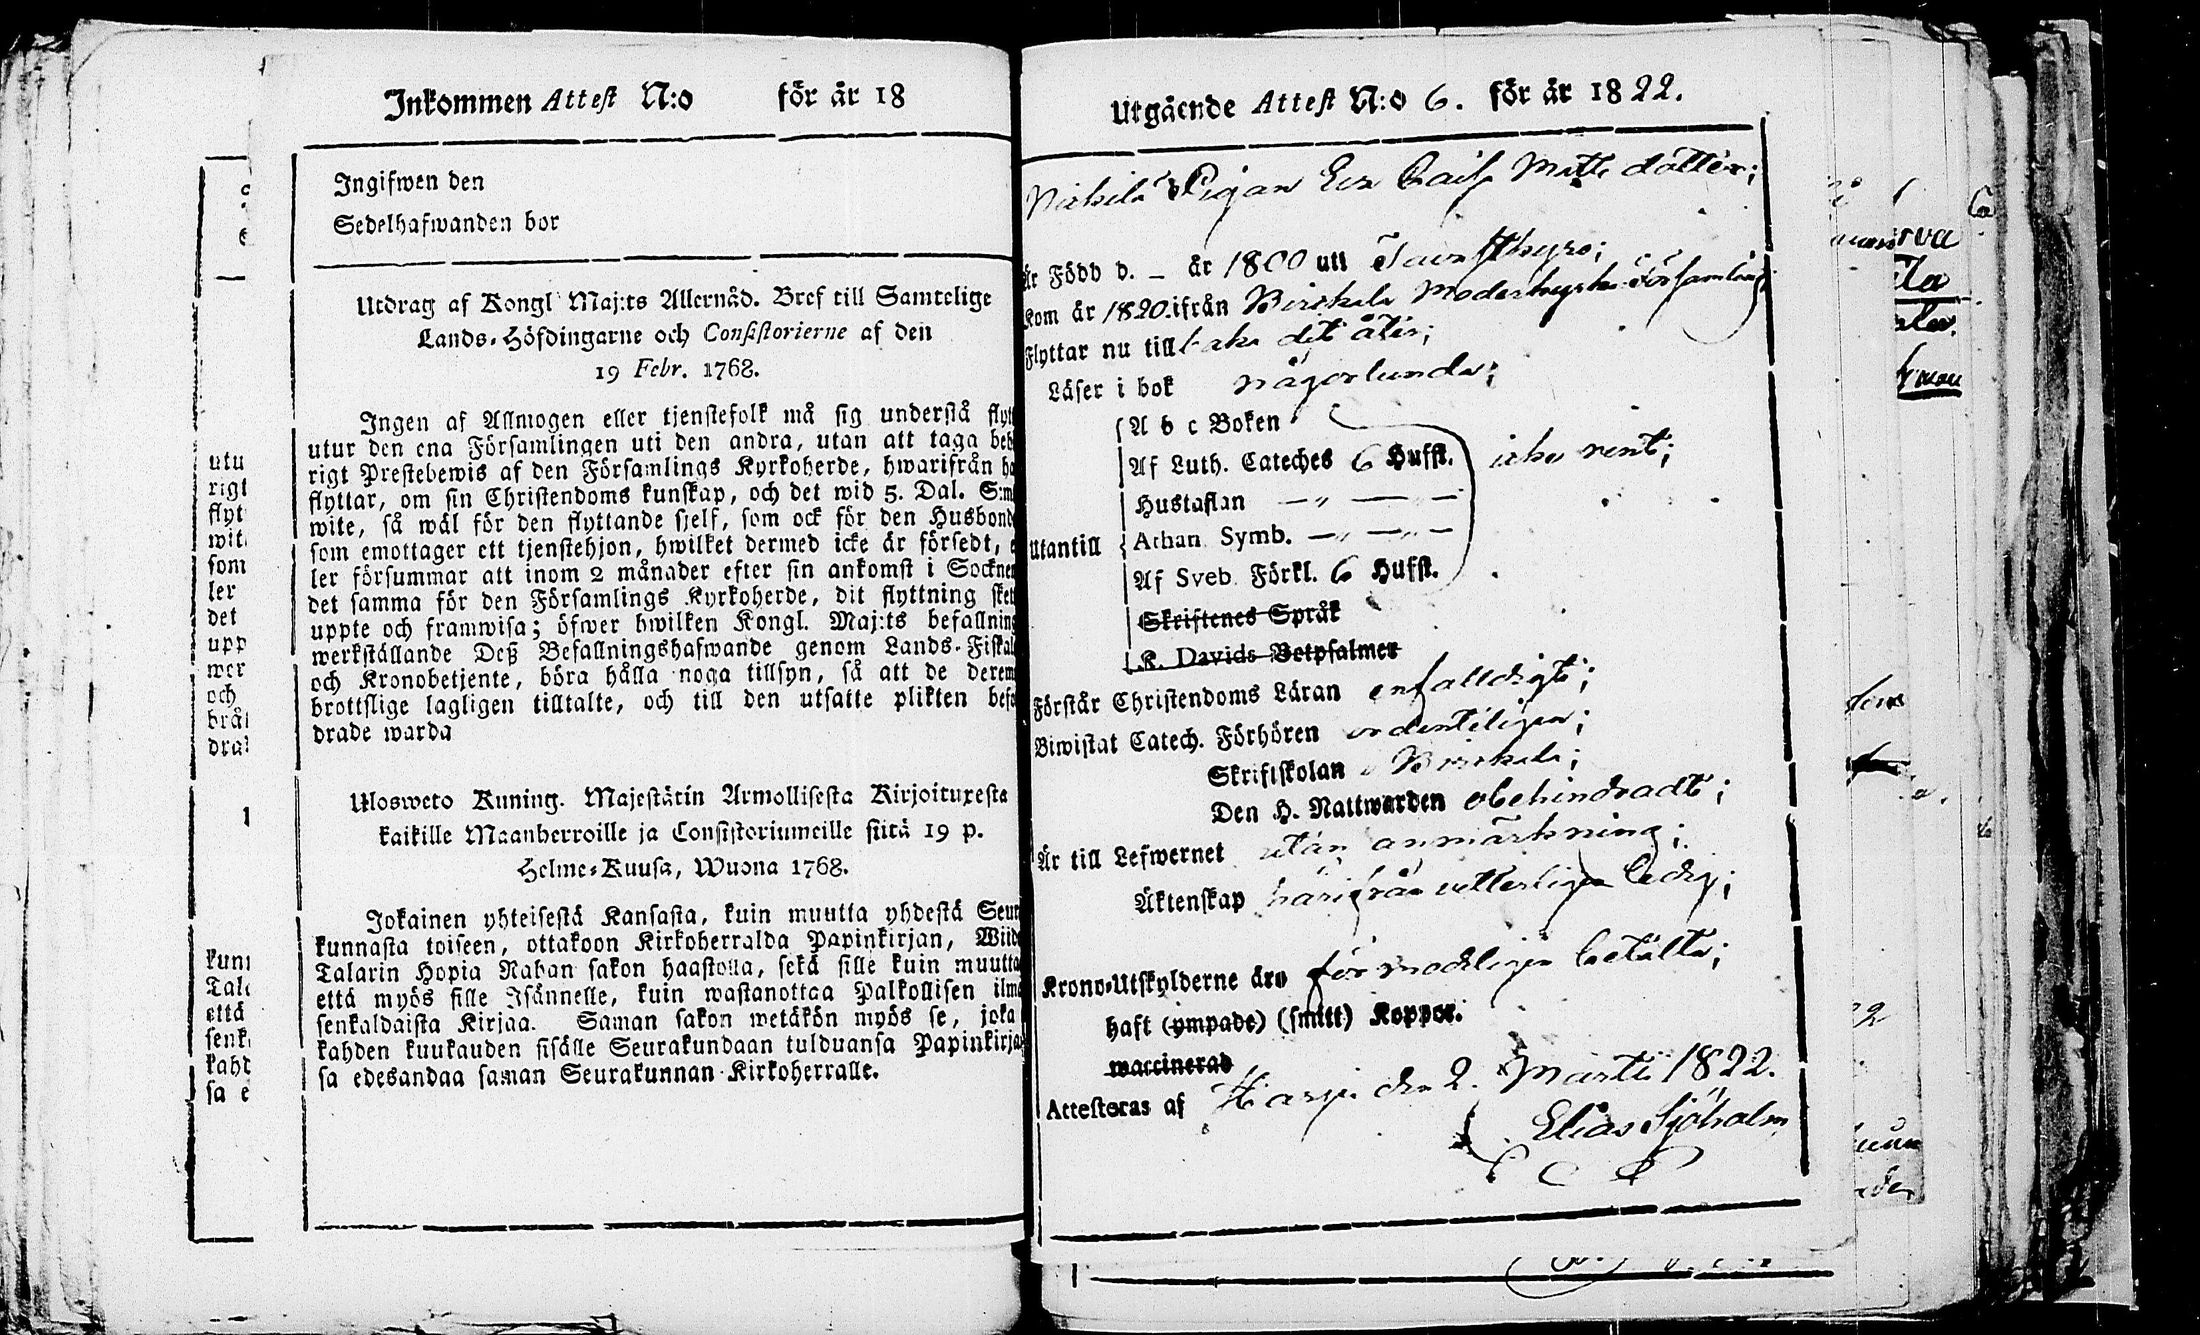 Inkommen Attest N:o för år 18
Ingifwen den
Sedelhafwanden bor
Utdrag af Kongl Maj:ts Allernåd. Bref till Samtelige
Lands-Höfdingarne och Consistorierne af den
19 Febr. 1768.
Ingen af Allmogen eller tjenstefolk må sig understå flyt
utur den ena Församlingen uti den andra, utan att taga beh
rigt Prestebewis af den Församlings Kyrkoherde, hwarifrån ha
flyttar, om sin Christendoms kunskap, och det wid 5. Dal. S:m
wite, så wäl för den flyttande sjelf, som ock för den Husbond
som emottager ett tjenstehjon, hwilket dermed icke är försedt, e
ler försummar att inom 2 månader efter sin ankomst i Socknen
det samma för den Församlings Kyrkoherde, dit flyttning sket
uppte och framwisa; öfwer hwilken Kongl. Maj:ts befallning
werkställande Deß Befallningshafwande genom Lands-Fiskal
och Kronobetjente, böra hålla noga tillsyn, så att de derem
brottslige lagligen tilltalte, och till den utsatte plikten befo
drade warda
Ulosweto Kuning. Majestätin Armollisesta Kirjoituxesta
kaikille Maanherroille ja Consistoriumeille siitä 19 p.
Helme-Kuusa, Wuona 1768.
Jokainen yhteisestä Kansasta, kuin muutta yhdestä Seur
kunnasta toiseen, ottakoon Kirkoherralda Papinkirjan, Wiid
Talarin Hopia Rahan sakon haastolla, sekä sille kuin muutta
että myös sille Isännelle, kuin wastanottaa Palkollisen ilma
senkaldaista Kirjaa. Saman sakon wetäkön myös se, joka
kahden kuukauden sisälle Seurakundaan tulduansa Papinkirja
sa edesandaa saman Seurakunnan Kirkoherralle.
Utgående Attest N:o 6. för år 1822.
Pigan Eva Caisa Matts dotter;
Är Född d. – år 1800 uti Tavastkyro;
Kom år 1820 ifrån Birckala Moderkyrko församling;
Flyttar nu till baka dit åter;
Läser i bok någorlunda;
A b c Boken
Af Luth. Cateches 6 Hufst. icke rent;
Hustaflan — „ — —
Utantill Athan. Symb. — „ — „ —
Af Sveb. Förkl. 6 Hufst.
Skriftenes Språk
K. Davids Botpsalmer
Förstår Christendoms Läran enfalldigt;
Biwistat Catech. Förhören ordenteligen;
Skriftskolan i Birckala;
Den H. Nattwarden obehindradt;
Är till Lefwernet utan anmärkning;
Äktenskap härifrån vetterligen ledig;
Krono-Utskylderne äro förmodligen betalte;
haft (ympade) (smitt) Koppor.
waccinerad
Attesteras af Harju den 2. Martii 1822.
Elias Sjöholm